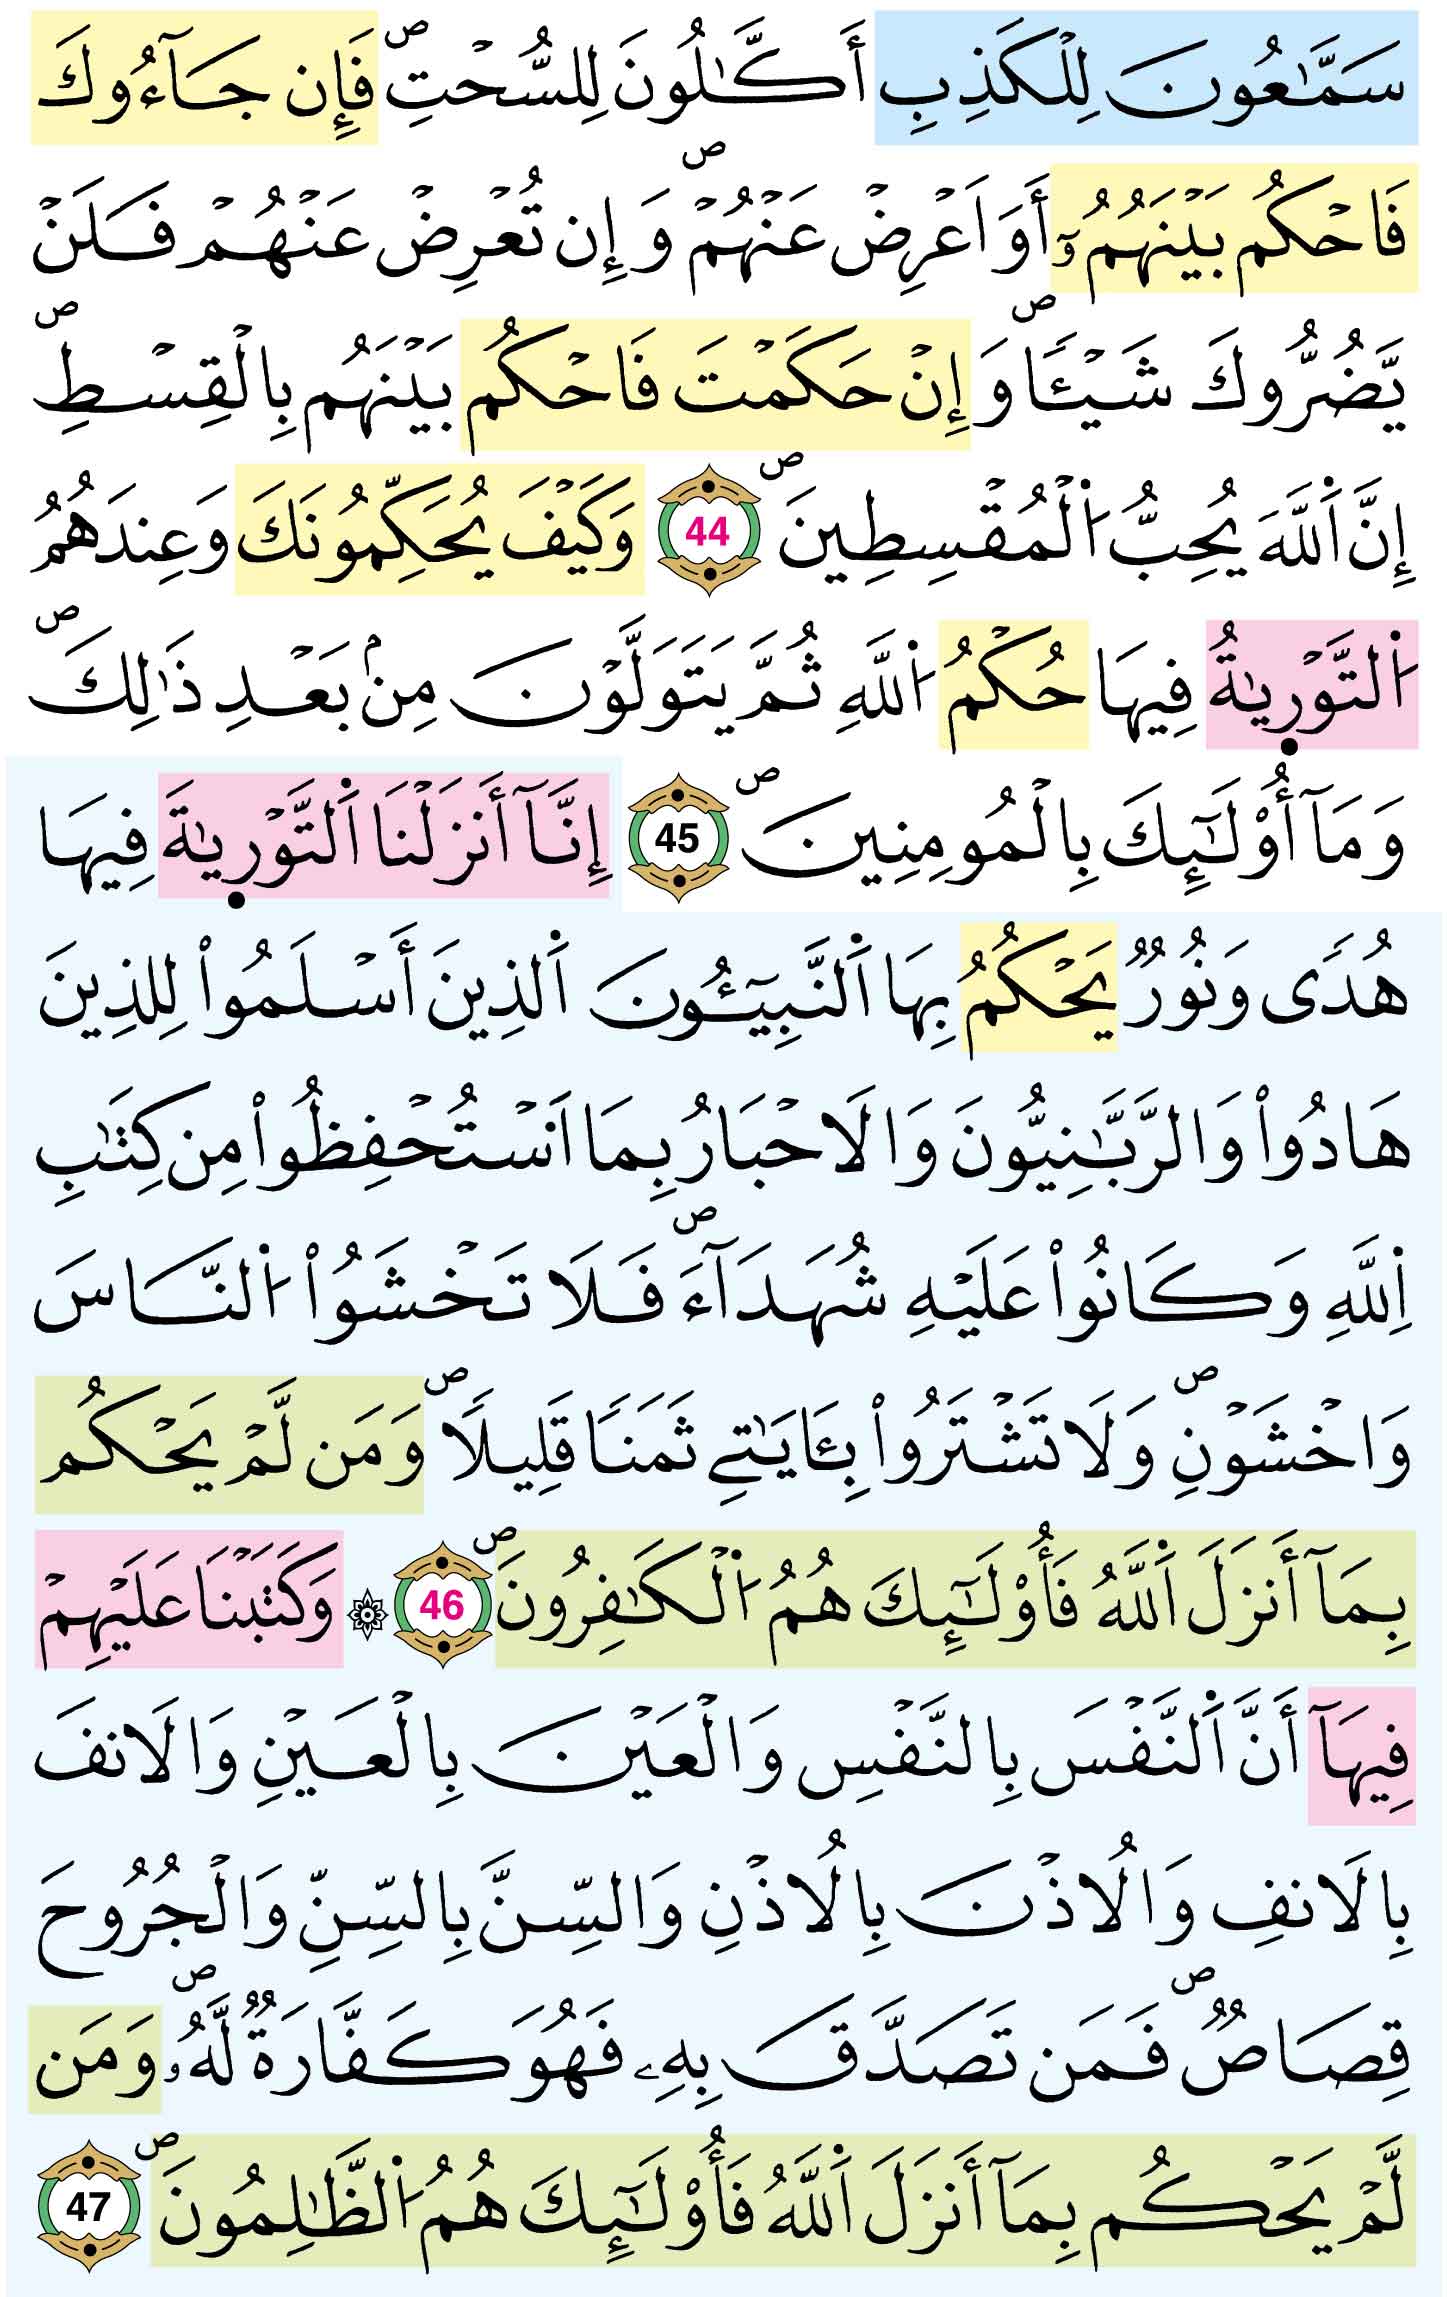 سَمَّٰعُونَ لِلْكَذِبِ أَكَّٰلُونَ لِلسُّحْتِۖ فَإِن جَآءُوكَ
فَاحْكُم بَيْنَهُمُۥٓ أَوَ اَعْرِضْ عَنْهُمْۖ وَإِن تُعْرِضْ عَنْهُمْ فَلَنْ
يَّضُرُّوكَ شَيْـٔاًۖ وَإِنْ حَكَمْتَ فَاحْكُم بَيْنَهُم بِالْقِسْطِۖ
إِنَّ اَ۬للَّهَ يُحِبُّ اُ۬لْمُقْسِطِينَۖ 44 وَكَيْفَ يُحَكِّمُونَكَ وَعِندَهُمُ
اُ۬لتَّوْر۪يٰةُ فِيهَا حُكْمُ اُ۬للَّهِ ثُمَّ يَتَوَلَّوْنَ مِنۢ بَعْدِ ذَٰلِكَۖ
وَمَآ أُوْلَٰٓئِكَ بِالْمُومِنِينَۖ 45 إِنَّآ أَنزَلْنَا اَ۬لتَّوْر۪يٰةَ فِيهَا
هُدىً وَنُورٌ يَحْكُمُ بِهَا اَ۬لنَّبِيٓـُٔونَ اَ۬لذِينَ أَسْلَمُواْ لِلذِينَ
هَادُواْ وَالرَّبَّٰنِيُّونَ وَالَاحْبَارُ بِمَا اَ۟سْتُحْفِظُواْ مِن كِتَٰبِ
اِ۬للَّهِ وَكَانُواْ عَلَيْهِ شُهَدَآءَۖ فَلَا تَخْشَوُاْ اُ۬لنَّاسَ
وَاخْشَوْنِۖ وَلَا تَشْتَرُواْ بِـَٔايَٰتِے ثَمَناً قَلِيلاًۖ وَمَن لَّمْ يَحْكُم
بِمَآ أَنزَلَ اَ۬للَّهُ فَأُوْلَٰٓئِكَ هُمُ اُ۬لْكَٰفِرُونَۖ 46 ۞ وَكَتَبْنَا عَلَيْهِمْ
فِيهَآ أَنَّ اَ۬لنَّفْسَ بِالنَّفْسِ وَالْعَيْنَ بِالْعَيْنِ وَالَانفَ
بِالَانفِ وَالُاذْنَ بِالُاذْنِ وَالسِّنَّ بِالسِّنِّ وَالْجُرُوحَ
قِصَاصٌۖ فَمَن تَصَدَّقَ بِهِۦ فَهُوَ كَفَّارَةٌ لَّهُۥۖ وَمَن
لَّمْ يَحْكُم بِمَآ أَنزَلَ اَ۬للَّهُ فَأُوْلَٰٓئِكَ هُمُ اُ۬لظَّٰلِمُونَۖ 47